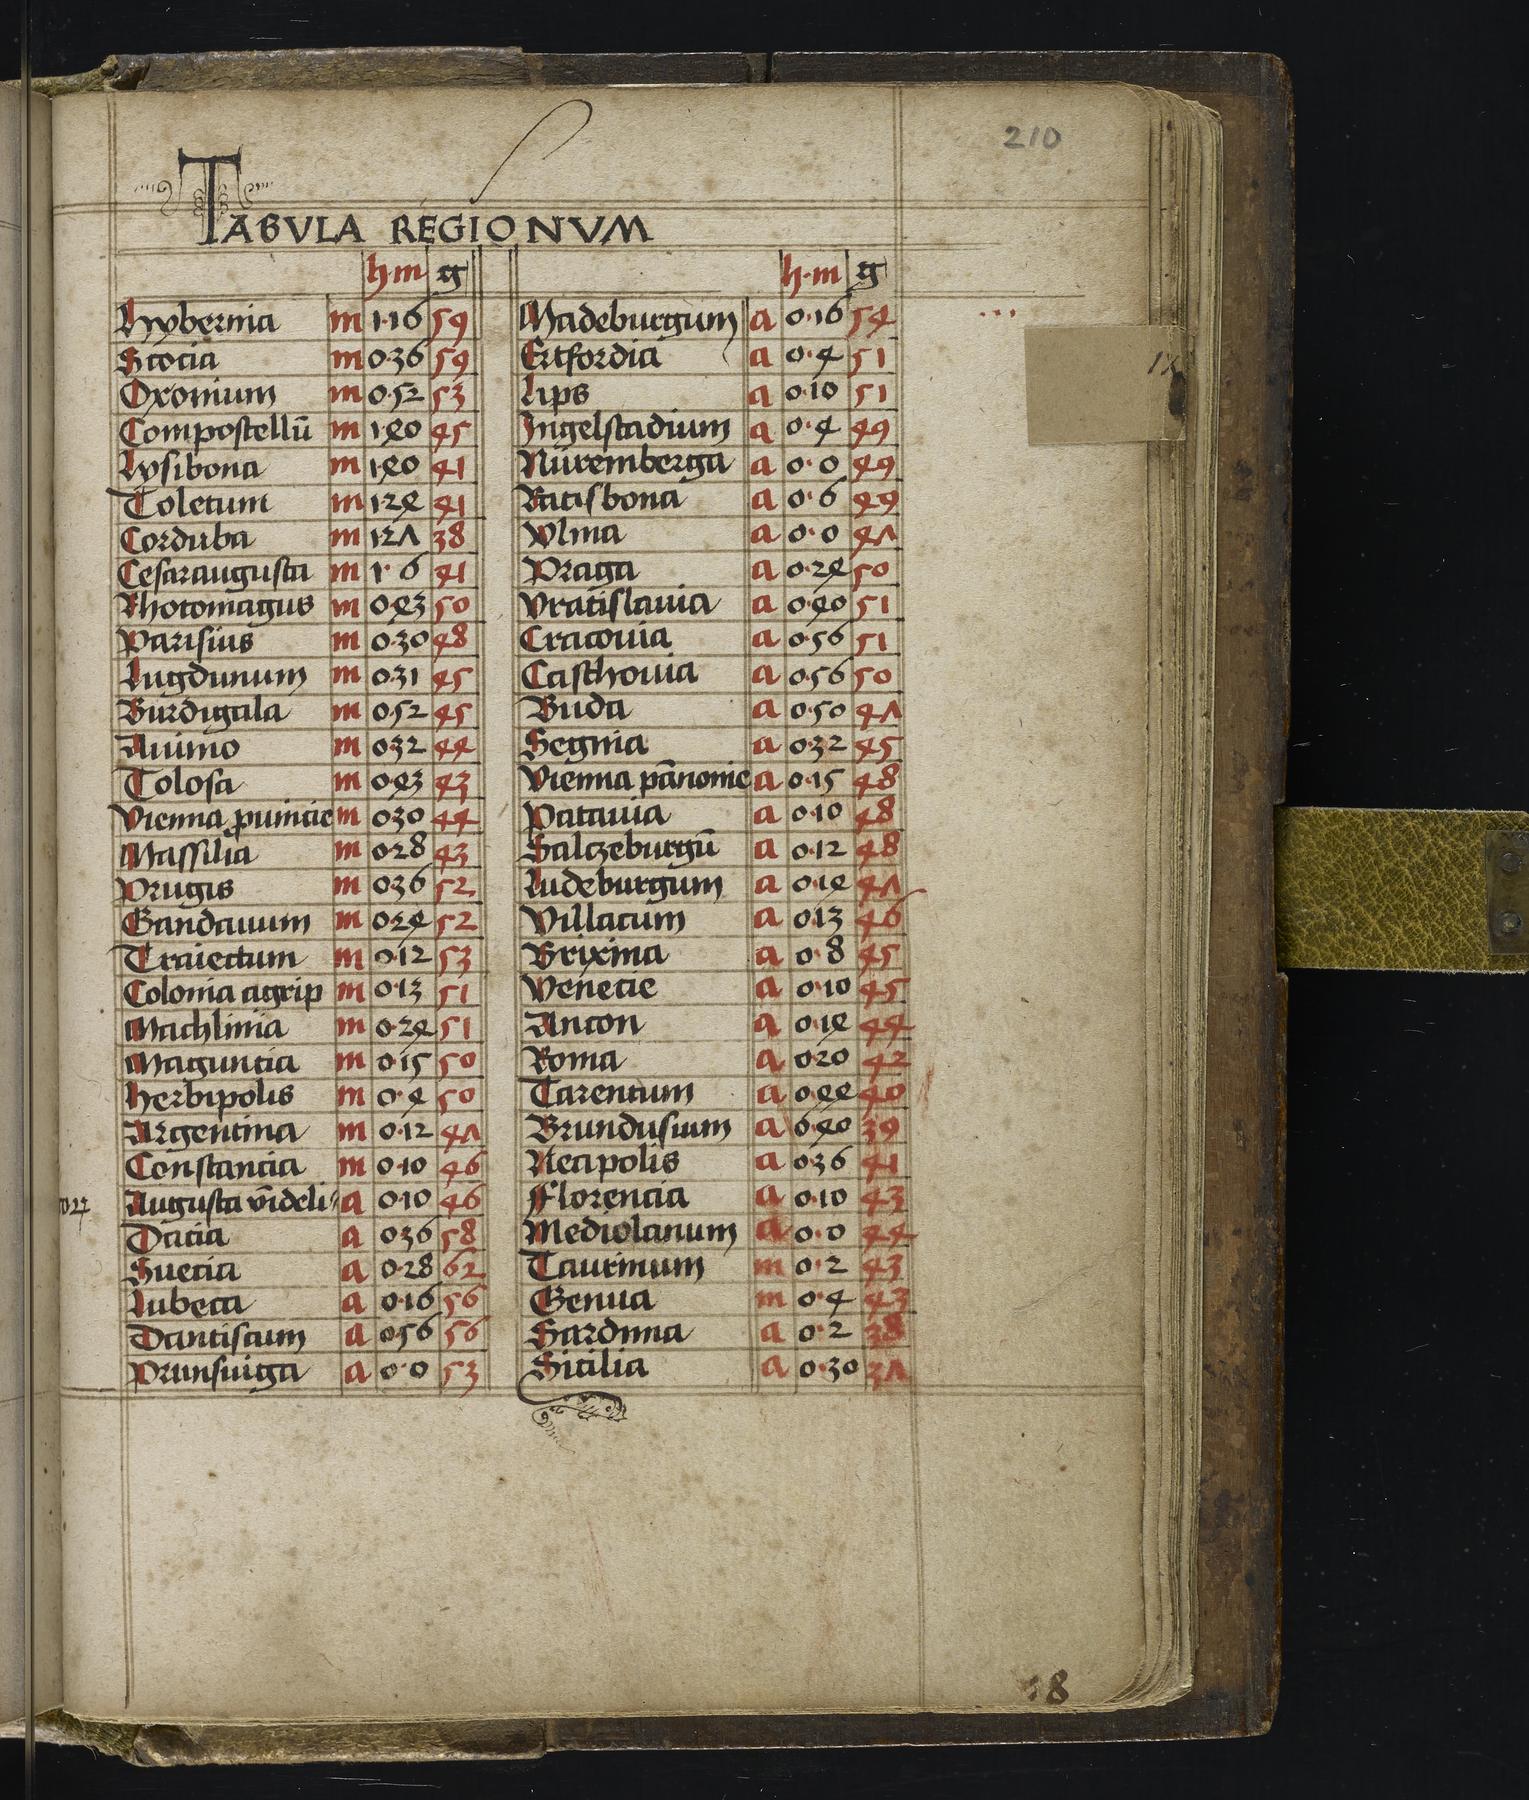 210
TABVLA REGIONVM
h·m g
Hybernia m 1·16 59
Scocia m 0·36 59
Oxonium m 0·52 53
Compostellū m 1·40 45
Lysibona m 1·40 41
Toletum m 1·24 41
Corduba m 1·27 38
Cesaraugusta m 1·6 41
Rhotomagus m 0·43 50
Parisius m 0·30 48
Lugdunum m 0·31 45
Burdigala m 0·52 45
Auimo m 0·32 44
Tolosa m 0·43 43
Vienna puincie m 0·30 44
Massilia m 0·28 43
Prugis m 0·36 52
Gandauum m 0·24 52
Traiectum m 0·12 53
Colonia agrip m 0·13 51
Machlinia m 0·24 51
Maguntia m 0·15 50
Herbipolis m 0·4 50
Argentina m 0·12 47
Constancia m 0·10 46
Augusta vīdeli a 0·10 46
Dacia a 0·36 58
Suecia a 0·28 62
Lubeca a 0·16 56
Dantiscum a 0·56 56
Prunsuiga a 0·0 53
h·m g
Madeburgum a 0·16 54
Ertfordia a 0·4 51
Lips a 0·10 51
Ingelstadium a 0·4 49
Nuremberga a 0·0 49
Ratisbona a 0·6 49
Vlma a 0·0 47
Praga a 0·24 50
Vratislauia a 0·40 51
Cracouia a 0·56 51
Casthouia a 0·56 50
Buda a 0·50 47
Segnia a 0·32 45
Vienna pānonie a 0·15 48
Patauia a 0·10 48
Salczeburgū a 0·12 48
Iudeburgum a 0·14 47
Villacum a 0·13 46
Brixina a 0·8 45
Venecie a 0·10 45
Ancon a 0·14 44
Roma a 0·20 42
Tarentum a 0·44 40
Brundusium a 0·40 39
Neapolis a 0·36 41
Florencia a 0·10 43
Mediolanum a 0·0 44
Taurinum m 0·2 43
Genua m 0·4 43
Sardinia a 0·2 38
Sicilia a 0·30 37
8